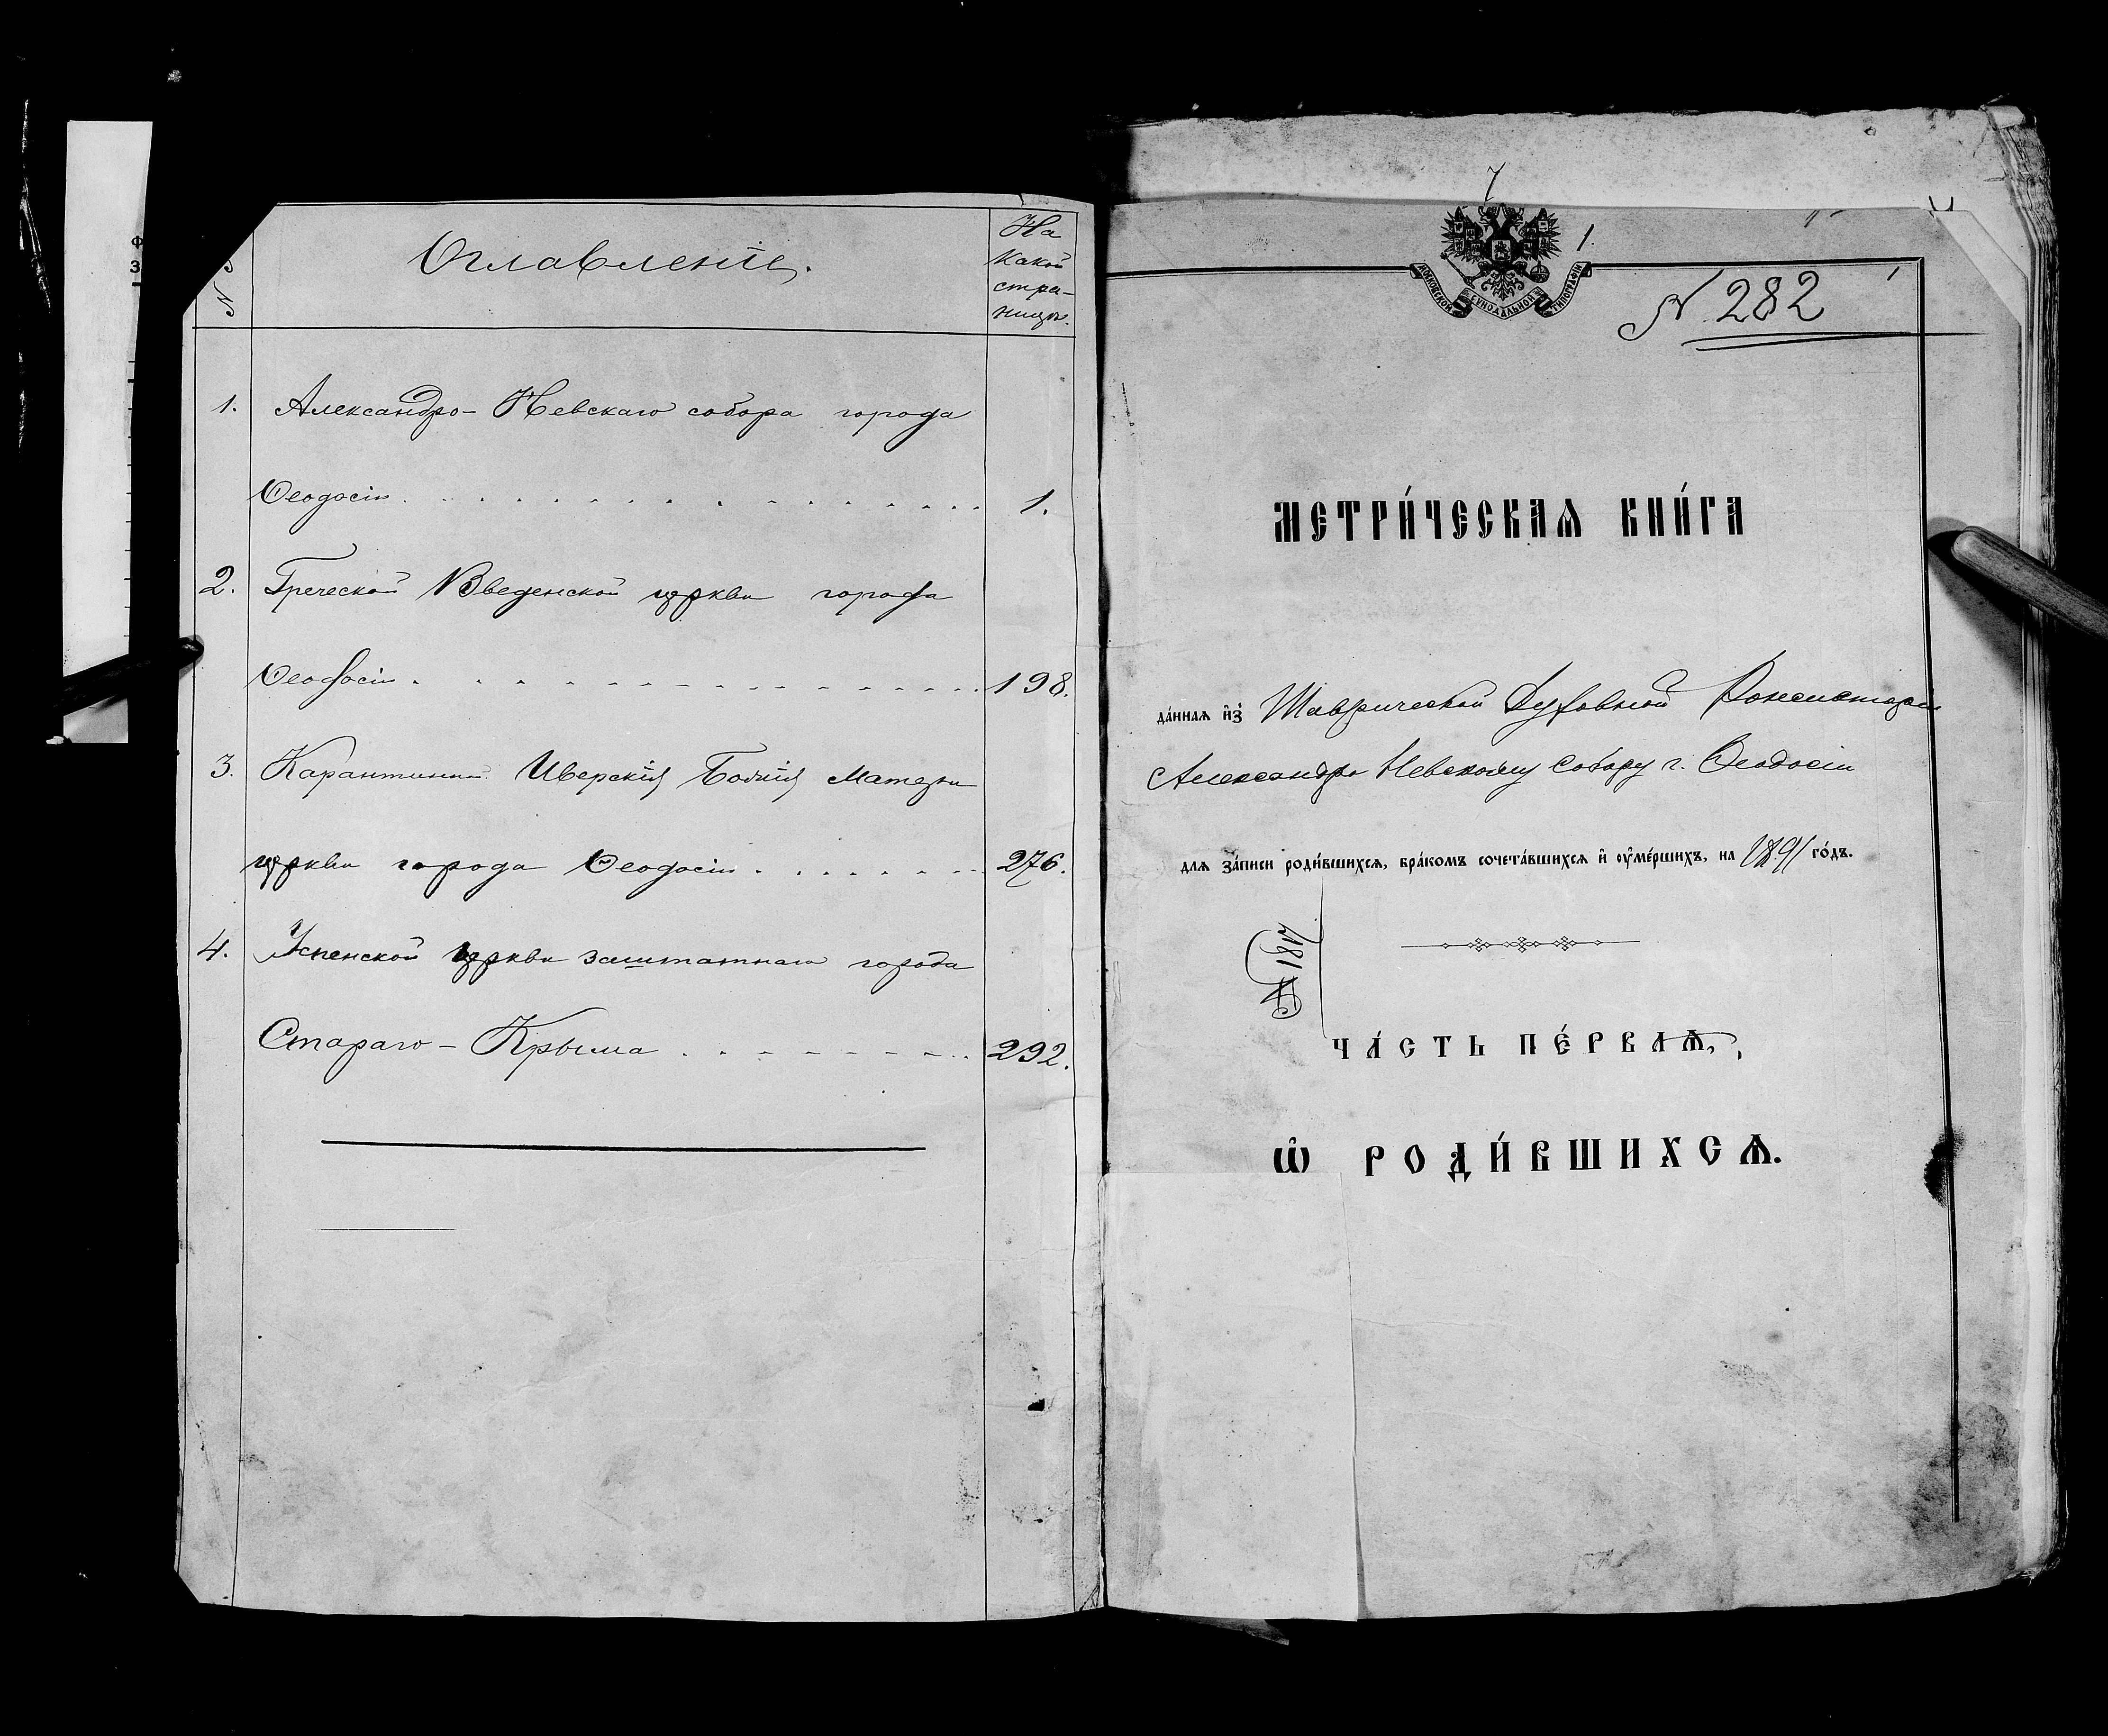 Оглавленіе.
На
какой
стра-
ницѣ.
1. Александро-Невскаго собора города
Ѳеодосіи 1.
2. Греческой Введенской церкви города
Ѳеодосіи 198.
3. Карантинной Иверскія Божія Матери
церкви города Ѳеодосіи 276.
4. Успенской церкви заштатнаго города
Стараго-Крыма 292.
7
1.
МОСКОВСКОЙ СѴНОДАЛЬНОЙ ТИПОГРАФІИ
N. 282
МЕТРИ́ЧЕСКАѦ КНИ́ГА
да́ннаѧ и҆з̾ Таврической Духовной Консисторіи
Александро Невскому Собору г. Ѳеодосіи
длѧ за́писи роди́вшихсѧ, бра́комъ сочета́вшихсѧ и҆ ᲂу҆ме́ршихъ, на 1891 го́дъ.
№ 1817
ЧА́СТЬ ПЕ́РВАѦ,
Ѡ҆ РОДИ́ВШИХСѦ.